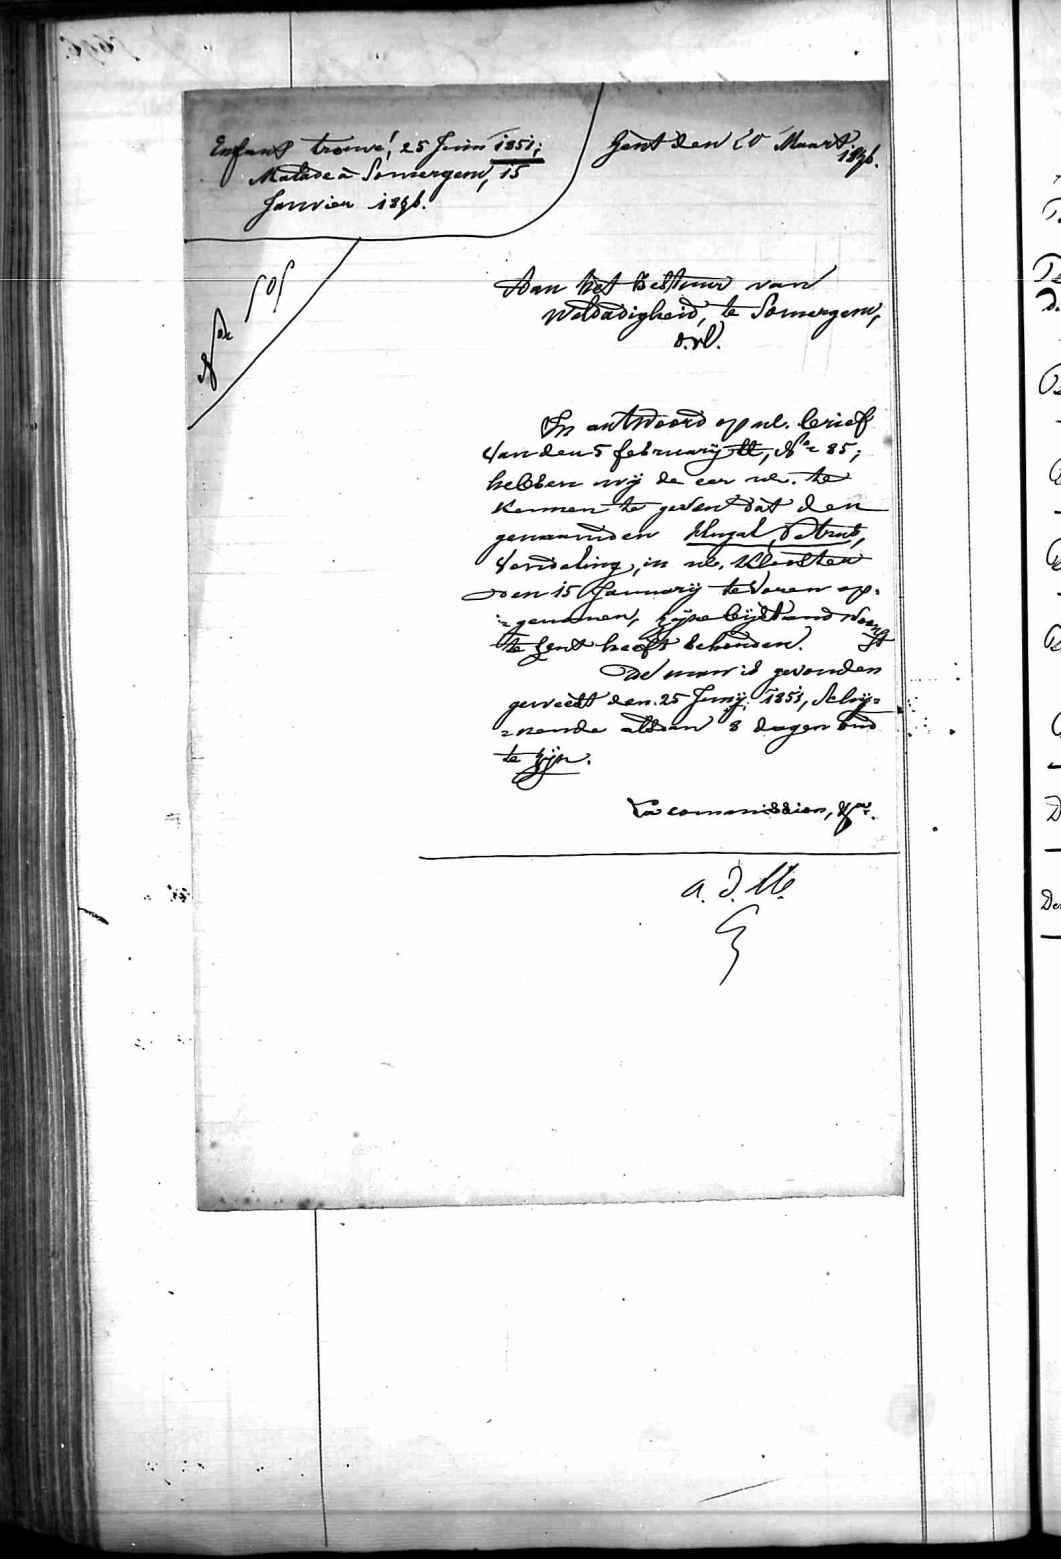 Enfant trouvé, 25 Juin 1851;
Malade à Somergem, 15
Janvier 1896.
Gent den 20 Maart
1896.
Aan het Bestuur van
Weldadigheid, te Somergem,
O.Vl.
In antwoord op ul. brief
van den 5 february ll, N° 85;
hebben wij de eer ul. te
kennen te geven dat den
genaamden Petrus,
vondeling, in ul. klooster
den 15 January tevoren op-
=genomen, zijne bijstand woonst
te Gent heeft behouden.
De man is gevonden
geweest den 25 Junij 1851, schij=
=nende alsdan 8 dagen oud
te zijn.
La commission, &a.